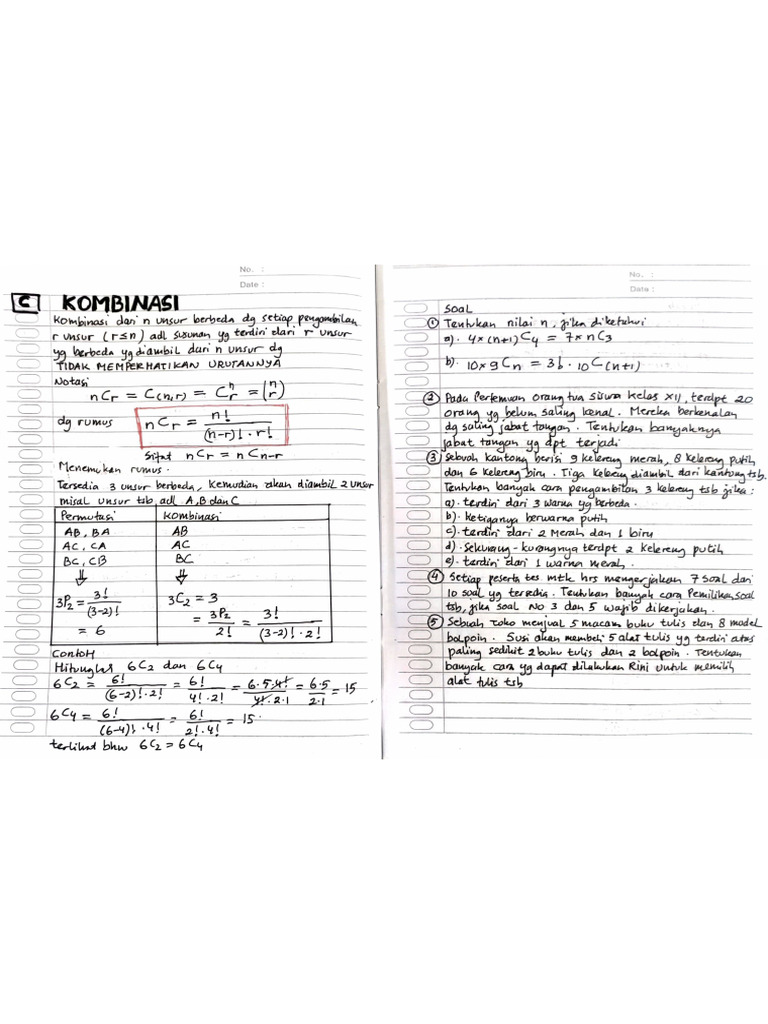 No. :
Date :
C KOMBINASI
Kombinasi dari n unsur berbeda dg setiap pengambilan
r unsur (r≤n) adl susunan yg terdiri dari r unsur
yg berbeda yg diambil dari n unsur dg
TIDAK MEMPERHATIKAN URUTANNYA
Notasi
nCr = C(n,r) = C^n_r = (n r)
dg rumus nCr = n! / (n-r)! . r!
Sifat nCr = nCn-r
Menemukan rumus.
Tersedia 3 unsur berbeda, Kemudian akan diambil 2 unsur
misal unsur tsb adl A,B dan C
Permutasi Kombinasi
AB, BA AB
AC, CA AC
BC, CB BC
⇓ ⇓
3P2 = 3! / (3-2)! 3C2 = 3
= 6 = 3P2 / 2! = 3! / (3-2)! . 2!
CONTOH
Hitunglah 6C2 dan 6C4
6C2 = 6! / (6-2)! . 2! = 6! / 4! . 2! = 6.5.4! / 4!.2.1 = 6.5 / 2.1 = 15
6C4 = 6! / (6-4)! . 4! = 6! / 2! . 4! = 15.
terlihat bhw 6C2 = 6C4
No. :
Date :
SOAL
① Tentukan nilai n, jika diketahui
a). 4×(n+1)C4 = 7×nC3
b). 10×9Cn = 36.10C(n+1)
② Pada Pertemuan orang tua siswa kelas XII, terdpt 20
orang yg belum saling kenal. Mereka berkenalan
dg saling jabat tangan. Tentukan banyaknya
jabat tangan yg dpt terjadi
③ Sebuah kantong berisi 9 kelereng merah, 8 kelereng putih
dan 6 kelereng biru. Tiga kelereng diambil dari kantong tsb.
Tentukan banyak cara pengambilan 3 kelereng tsb jika:
a). terdiri dari 3 warna yg berbeda.
b). Ketiganya berwarna putih
c). terdiri dari 2 Merah dan 1 biru
d). Sekurang-kurangnya terdpt 2 kelereng putih
e). terdiri dari 1 warna merah.
④ Setiap peserta tes mtk hrs mengerjakan 7 soal dari
10 soal yg tersedia. Tentukan banyak cara Pemilihan soal
tsb, jika soal No 3 dan 5 wajib dikerjakan.
⑤ Sebuah toko menjual 5 macam buku tulis dan 8 model
bolpoin. Susi akan membeli 5 alat tulis yg terdiri atas
paling sedikit 2 buku tulis dan 2 bolpoin. Tentukan
banyak cara yg dapat dilakukan Rini untuk memilih
alat tulis tsb